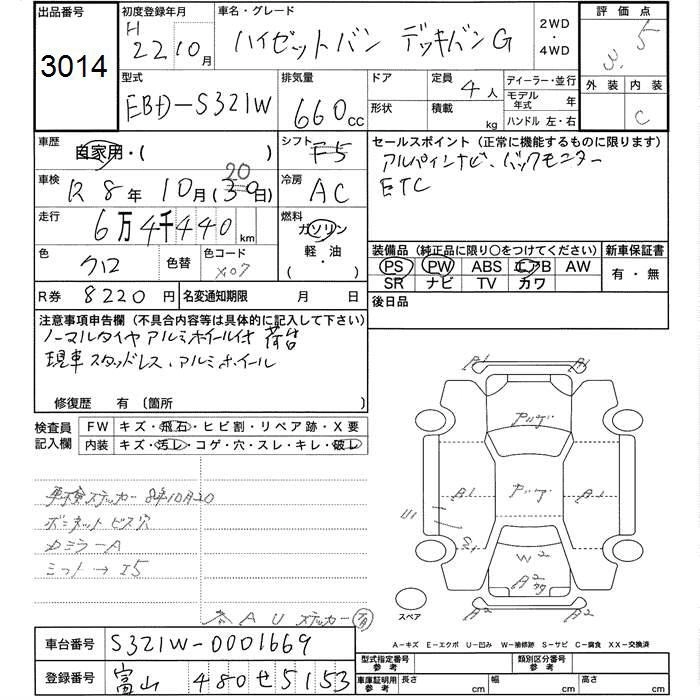 出品番号 3014
初度登録年月 H 22 10月
車名・グレード ハイゼットバン デッキバンG
2WD・4WD
評価点 3.5
外装 内装 C
型式 EBD-S321W
排気量 660cc
ドア 形状
定員 4人
積載 kg
ディーラー・並行
モデル年式 年
ハンドル 左・右
車歴 自家用・( )
シフト F5
セールスポイント(正常に機能するものに限ります)
アルパインナビ、バックモニター
ETC
車検 R8年10月(30日) 20
冷房 AC
走行 6万4千440km
燃料 ガソリン 軽・油 ( ・ )
色 クロ
色替
色コード X07
装備品(純正品に限り○をつけてください)
PS PW ABS エアB AW
SR ナビ TV カワ
新車保証書 有・無
R券 8220円
名変通知期限 月 日
後日品
注意事項申告欄(不具合内容等は具体的に記入して下さい)
ノーマルタイヤ アルミホイール付 荷台
現車スタッドレス、アルミホイール
修復歴 有 〔箇所 〕
検査員記入欄
FW キズ・飛石・ヒビ割・リペア跡・X要
内装 キズ・汚レ・コゲ・穴・スレ・キレ・破レ
車検ステッカー 8年10月20
ボンネット ビス穴
カミラーA
ミット→I5
A U ステッカー 有
A1 A1
A1 A2
W2
A2
A2 A2
スペア
A-キズ E-エクボ U-凹み W-補修跡 S-サビ C-腐食 XX-交換済
車台番号 S321W-0001669
型式指定番号 参考
類別区分番号 参考
登録番号 富山 480 せ 5153
車庫証明用 参考 長さ cm 幅 cm 高さ cm